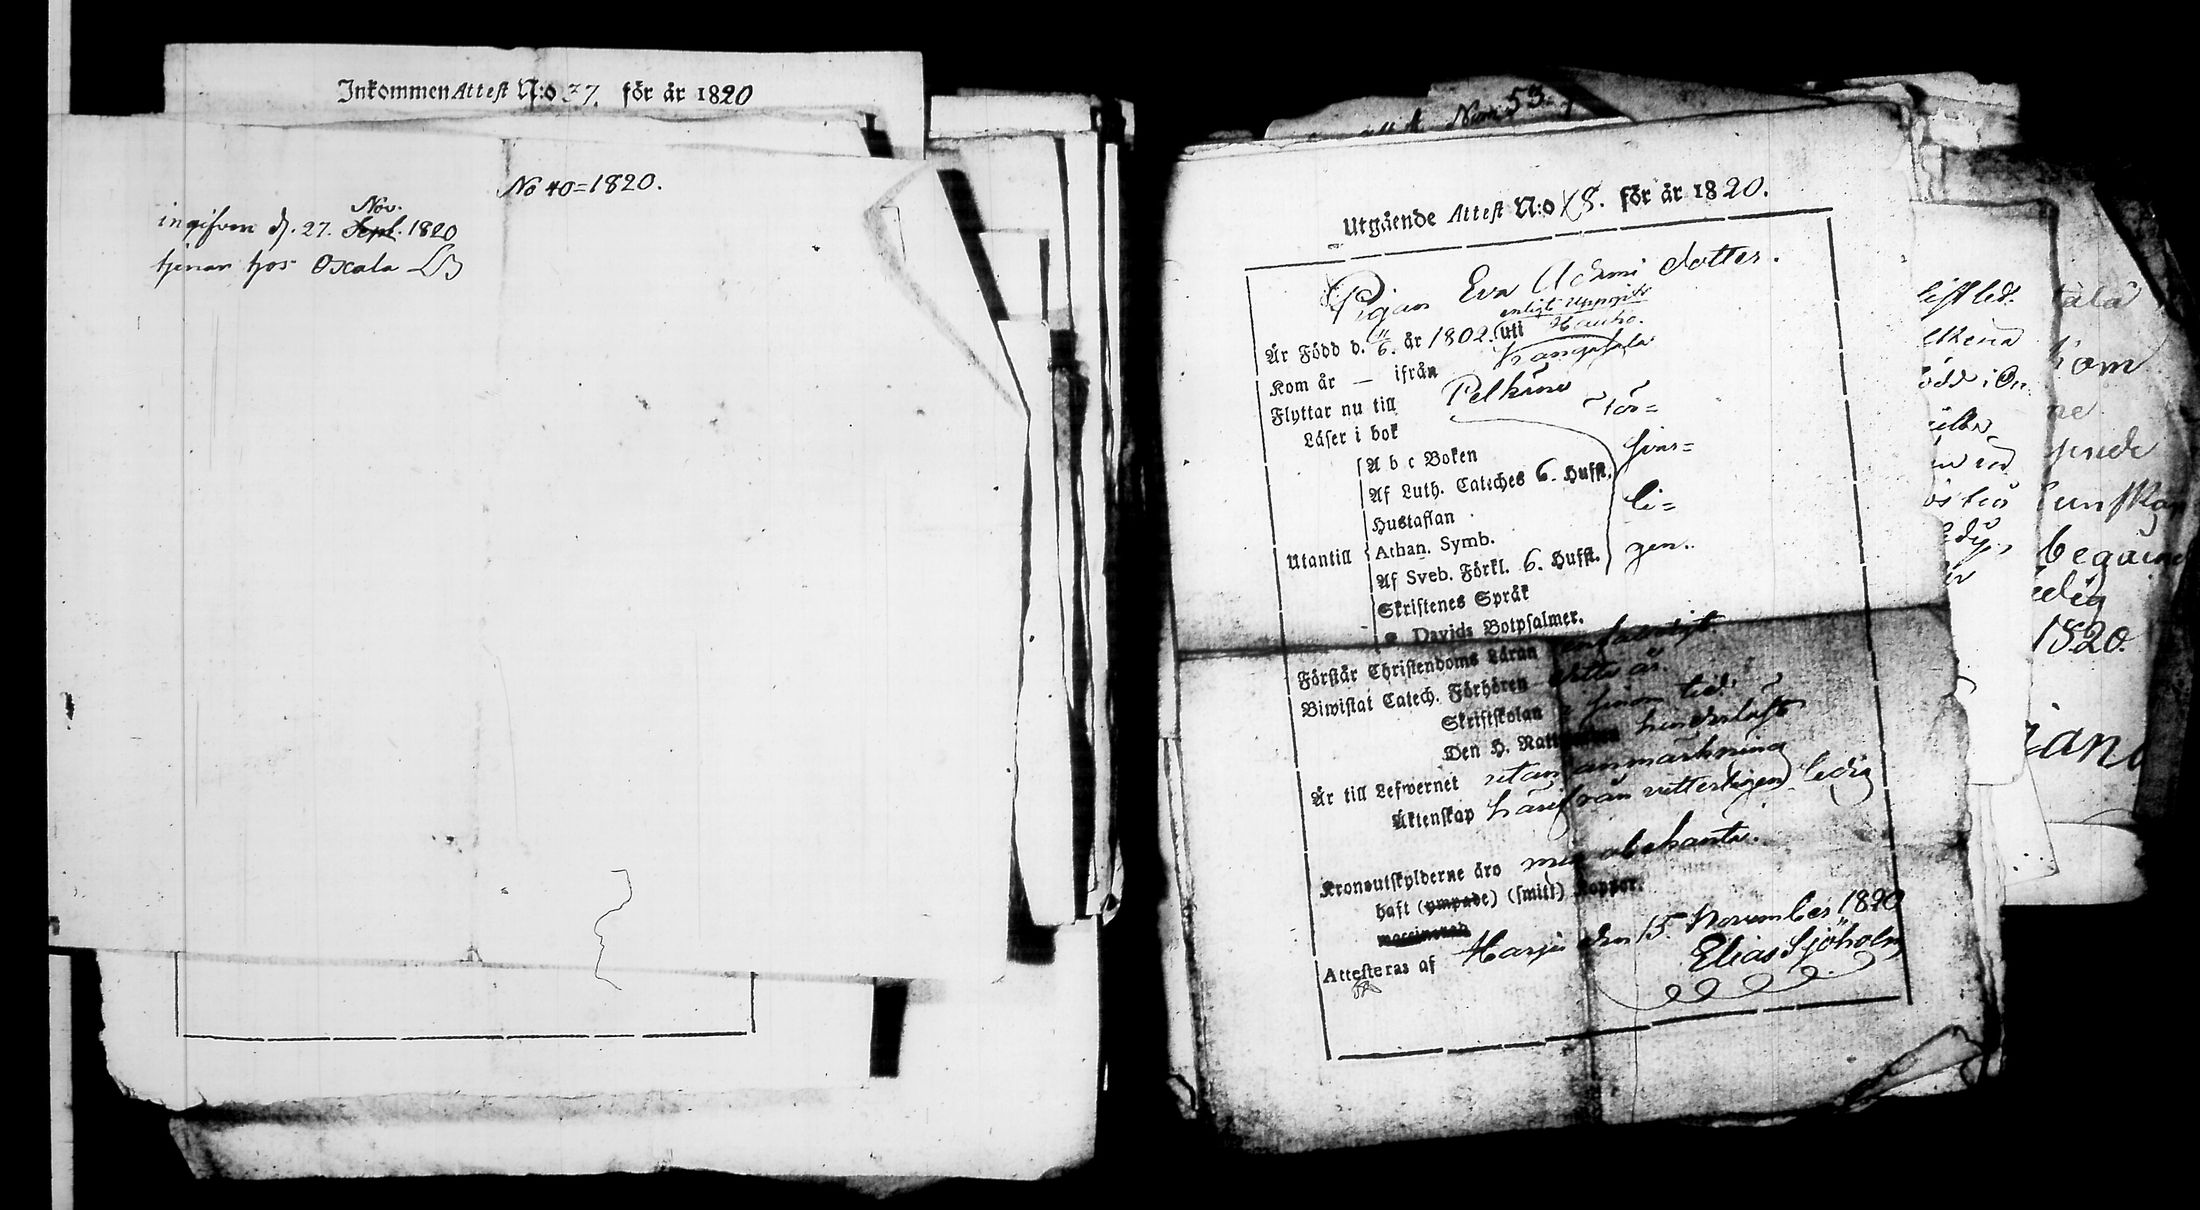 Inkommen Attest N:o 37. för år 1820
No 40=1820.
Nov.
ingifven d. 27. Sept. 1820
tjenar hos Oxala
Num 53.
Utgående Attest N:o 8. för år 1820.
Pigan Eva Adami dotter.
enligt uppgift
Är Född d. 11/6. år 1802. uti Hauho.
Kom år — ifrån Kangasala
Flyttar nu till Pelkäne
Läser i bok för=
A b c Boken svar=
Af Luth. Cateches 6. Hufst.
Hustaflan li=
Utantill Athan. Symb.
Af Sveb. Förkl. 6. Hufst. gen.
Skriftenes Språk
Davids Botpsalmer.
Förstår Christendoms Läran enfaldigt.
Biwistat Catech. Förhören detta år.
Skriftskolan i sinom tid.
Den H. hinderlöst
Är till Lefwernet utan anmärkning
Äktenskap härifrån vitterligen ledig
Kronoutskylderne äro mig obekanta.
haft (ympade) (smitt) koppor.
vaccinerad
Attesteras af Harju den 15. November 1820
Elias Sjöholm
1820.